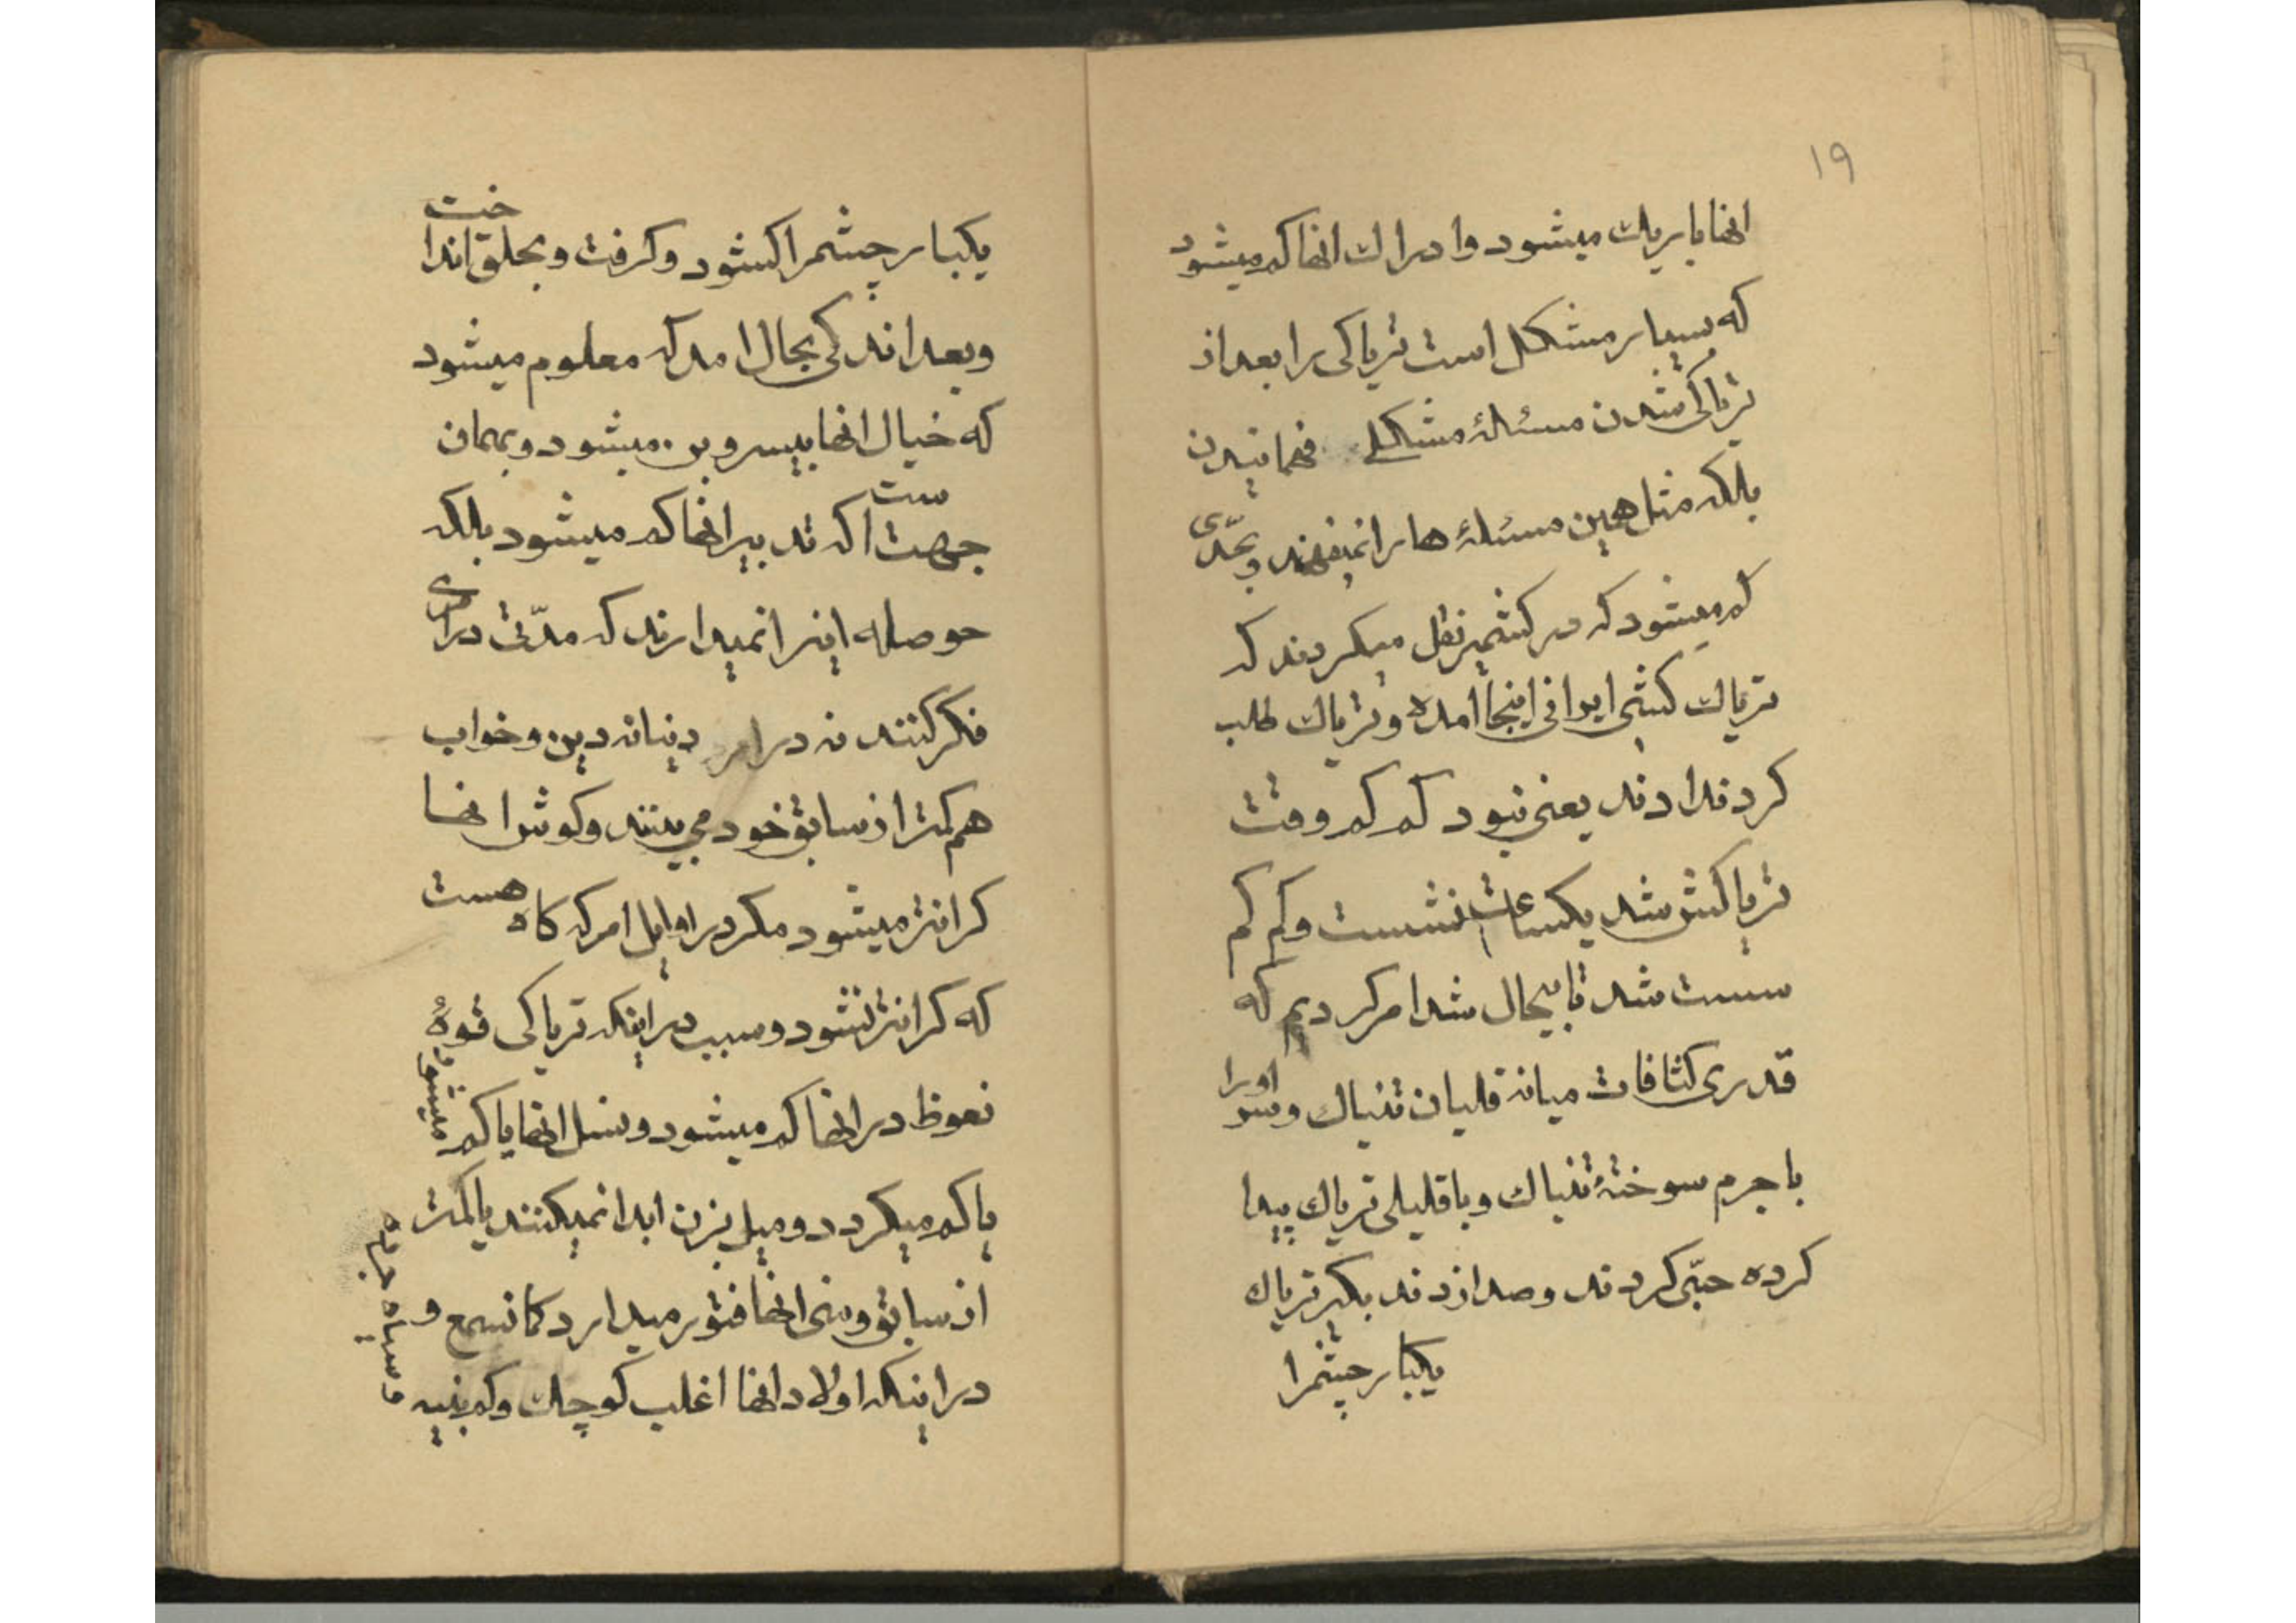 ۱۹
انها باریک میشود و ادراک انها کم میشود
که بسیار مشکل است تریاکی را بعد از
تریاکی شدن مسئلهٔ مشکلی فهمانیدن
بلکه مثل همین مسئلهٔ ها را نمیفهمند و بحدّی
کم میشود که در کشمیر نقل میکردند که
تریاک کشی ایرانی اینجا امده و تریاک طلب
کرد ندادند یعنی نبود کم کم وقت
تریاکش شد یکساعت نشست و کم کم
سست شد تا بیحال شد امر کردیم که
قدری کثافات میانه قلیان تنباک و سر اورا
با جرم سوختهٔ تنباک و با قلیلی تریاک پیدا
کرده حبّی کردند و صدا زدند بکیر تریاک
یکبار چشمرا
یکبار چشمرا کشود و کرفت و بحلق انداخت
و بعد اندکی بحال امد که معلوم میشود
که خیال انها بیسر و بن میشود و بهمان
جهت است که تدبیر انها کم میشود بلکه
حوصله اینرا نمیدارند که مدّتی درازی
فکر کنند نه در امر دنیا نه دین و خواب
هم کمتر از سابق خود می بینند و کوش انها
کرانتر میشود مکر در اوایل امر که کاه هست
که کرانتر نشود و سبب در اینکه تریاکی قوهٔ
نعوظ در انها کم میشود و نسل انها یا کم میشود
یا کم میکردد و میل بزن ابدا نمیکنند یا کمتر
از سابق و منی انها فتور میدارد کما نسمع و
در اینکه اولاد انها اغلب کوچک و کم بنیه
و سیاه چرده